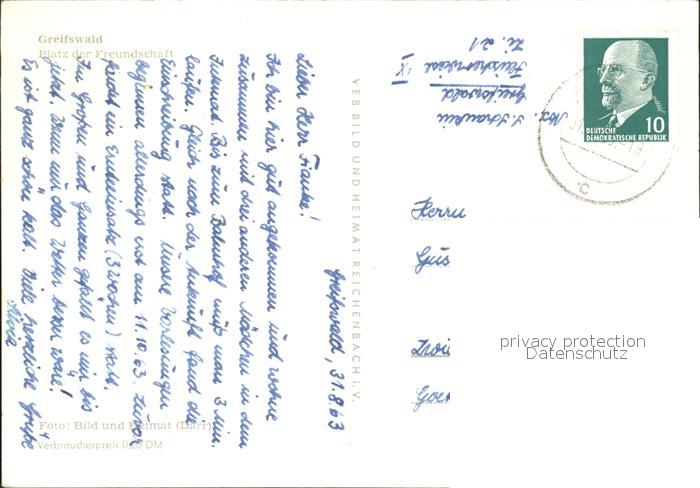 Greifswald
Platz der Freundschaft
Greifswald, 31.8.63
Lieber Herr Franke!
Ich bin hier gut angekommen und wohne
zusammen mit drei anderen Mädchen in dem
Internat. Bis zum Bahnhof muß man 3 Min.
laufen. Gleich nach der Ankunft fand die
Einschreibung statt. Unsere Vorlesungen
beginnen allerdings erst am 11.10.63. Zuvor
findet ein Ernteeinsatz (3 Wochen) statt.
Im Großen und Ganzen gefällt es mir bis
jetzt. Wenn nur das Wetter besser wäre!
Es ist ganz schön kalt. Viele herzliche Grüße
Foto: Bild und Heimat (Darr)
Verbraucherpreis 0,20 DM
VEB BILD UND HEIMAT REICHENBACH i. V.
Abs.
Greifswald
Fleischerwiese IX
Zi. 21
DEUTSCHE
DEMOKRATISCHE REPUBLIK
10
Herrn
Gus
Zwi
Goe
privacy protection
Datenschutz